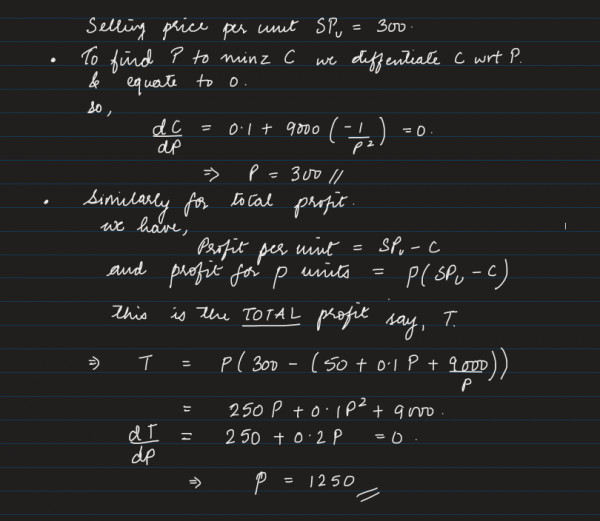 Selling price per unit SPᵤ = 300.
• To find P to minz C we diffentiate C wrt P.
& equate to 0.
so,
dC/dP = 0.1 + 9000 (-1/P²) = 0.
⇒ P = 300 //
• Similarly for total profit.
we have,
Profit per unit = SPᵤ - C
and profit for p units = p(SPᵤ - C)
this is the TOTAL profit say, T.
⇒ T = P(300 - (50 + 0.1P + 9000/P))
= 250P + 0.1P² + 9000.
dT/dP = 250 + 0.2P = 0.
⇒ P = 1250 //